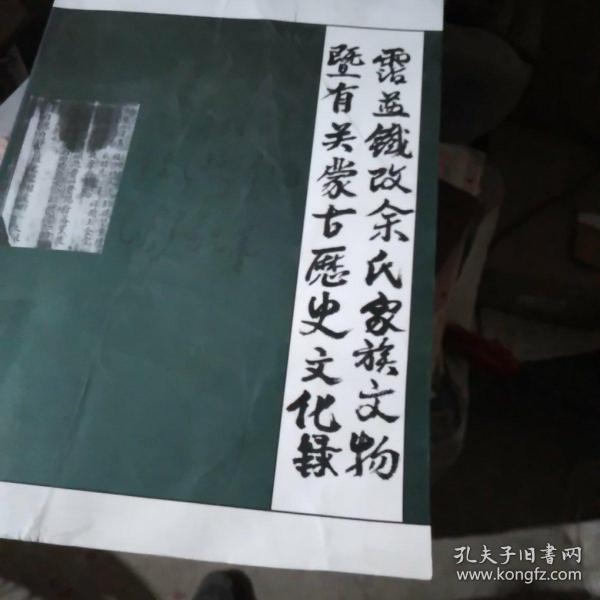 霑益鐵改余氏家族文物
暨有关蒙古歷史文化録
孔夫子旧书网
www.kongfz.com